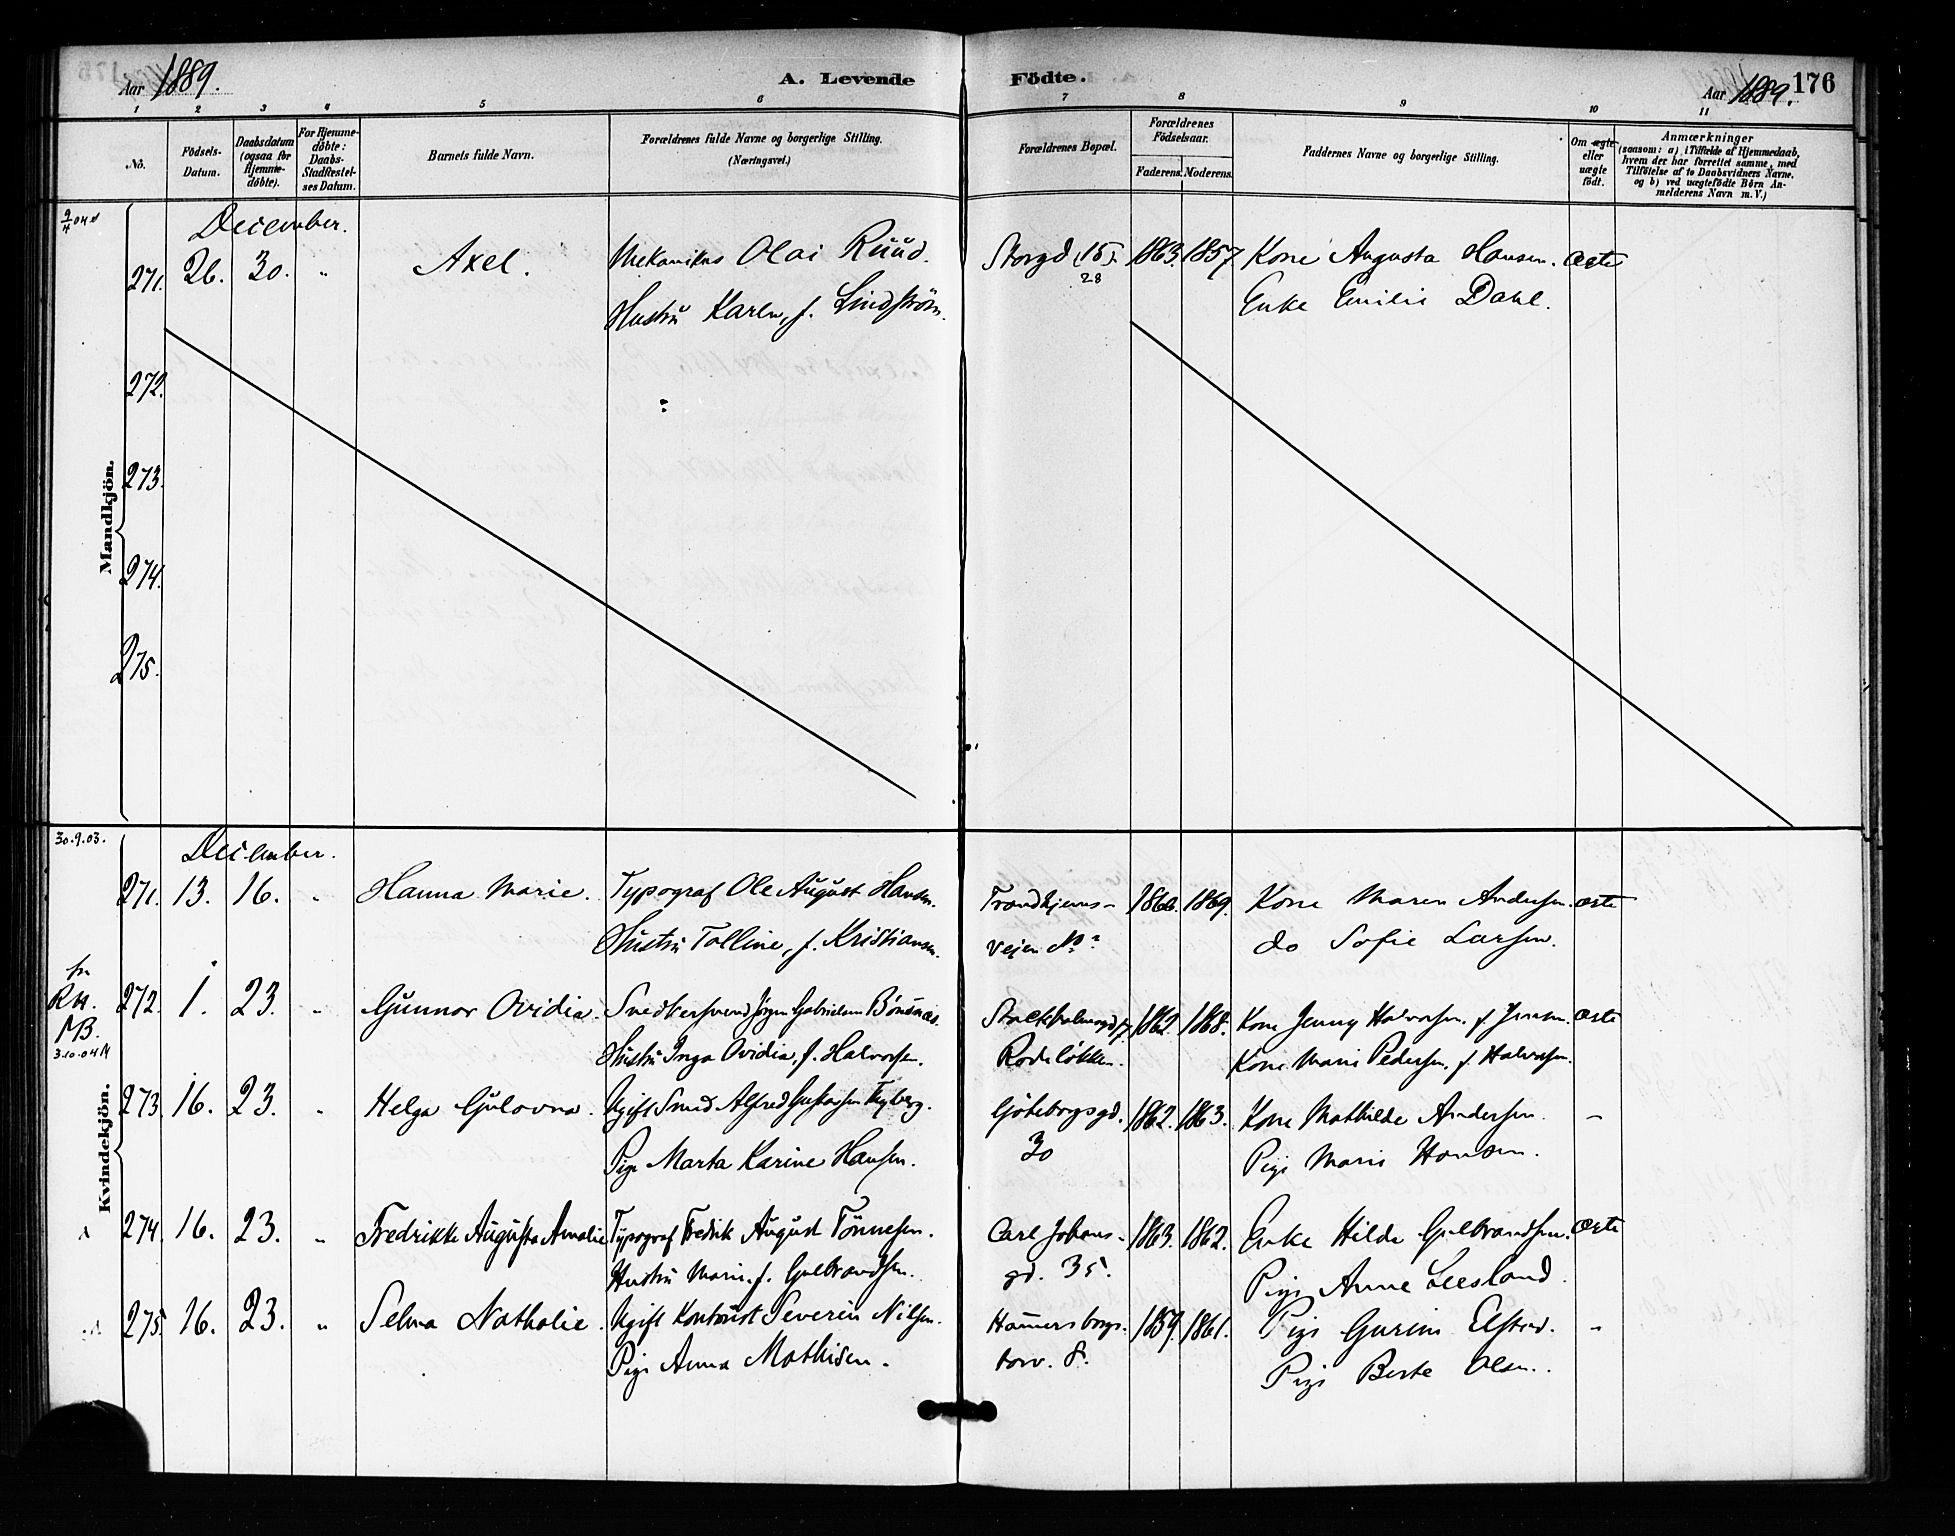 Aar 1889.
A. Levende Födte.
Aar 1889. 176
1 2 3 4 5 6 7 8 9 10 11
No.
Födsels-Datum.
Daabsdatum (ogsaa for Hjemme-döbte).
For Hjemme-döbte: Daabs-Stadfestel-ses Datum.
Barnets fulde Navn.
Forældrenes fulde Navne og borgerlige Stilling. (Næringsvei.)
Forældrenes Bopæl.
Forældrenes Födselsaar.
Faderens. Moderens.
Faddernes Navne og borgerlige Stilling.
Om ægte eller uægte födt.
Anmærkninger
(saasom: a) i Tilfælde af Hjemmedaab,
hvem der har forrettet samme, med
Tilföielse af to Daabsvidners Navne.
og b) ved uægtefödte Börn An-
melderens Navn m. V.)
Mandkjön.
December.
271. 26. 30. " Axel. Mekanikus Olai Ruud. Storgd (15). 1863. 1857 Kone Augusta Hansen. ægte
Hustru Karen, f. Lindström. 28 Enke Emilie Dahl.
272.
273.
274.
275.
30.9.03.
Kvindekjön.
December.
271. 13. 16. " Hanna Marie. Typograf Ole August Hansen. Trondhjems- 1869. Kone Maren Andersen. ægte
Hustru Tolline, f. Kristiansen. veien No " do Sofie Larsen.
272. 1. 23. " Gunnor Ovidia. Snedkersvend Jörgen Gabrielsen 1862. 1868. Kone Jenny Halvorsen, f. Jensen. ægte
Hustru Inga Ovidia, f. Halvorsen. Rodeløkken. Kone Marie Pedersen, f. Halvorsen.
3.10.04
273. 16. 23. " Helga Gulovna. Ugift Smed Alfred Gustavsen Göteborgsgd. 1862. 1863. Kone Mathilde Andersen. –
Pige Marta Karine Hansen. 30 Pige Marie Hansen.
274. 16. 23. " Fredrikke Augusta Amalie Typograf Fredrik August Tönnesen. Carl Johans- 1863. 1862. Enke Hilda Gulbrandsen. ægte
Hustru Marie, f. Gulbrandsen. gd. 35. Pige Anne Leesland.
275. 16. 23. " Selma Nathalie. Ugift Kontorist Severin Nilsen. Hammersborgs- 1859. 1861. Pige Gurine Elstad. –
Pige Anna Mathisen. torv. 8. Pige Berte Olsen.